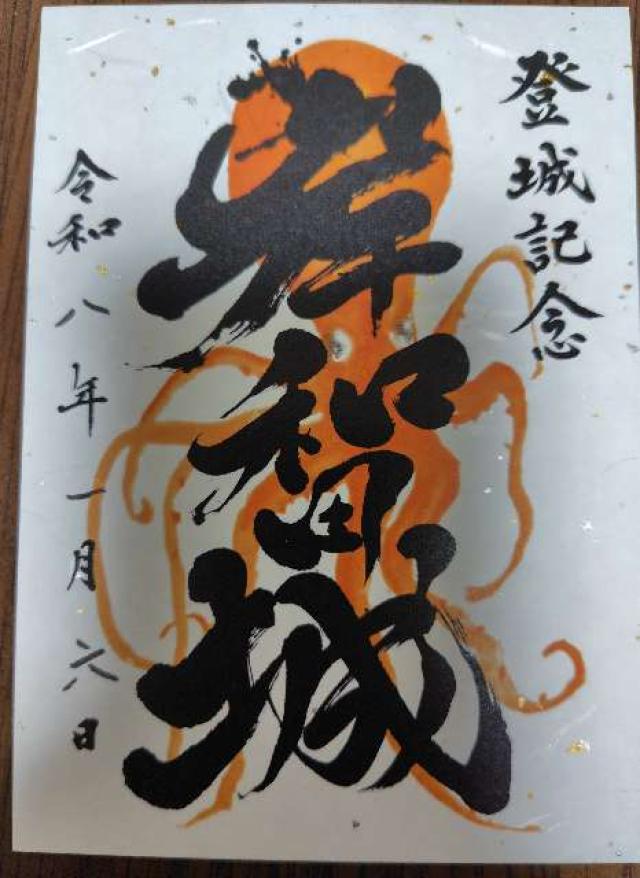 登城記念
岸和田城
令和八年一月六日